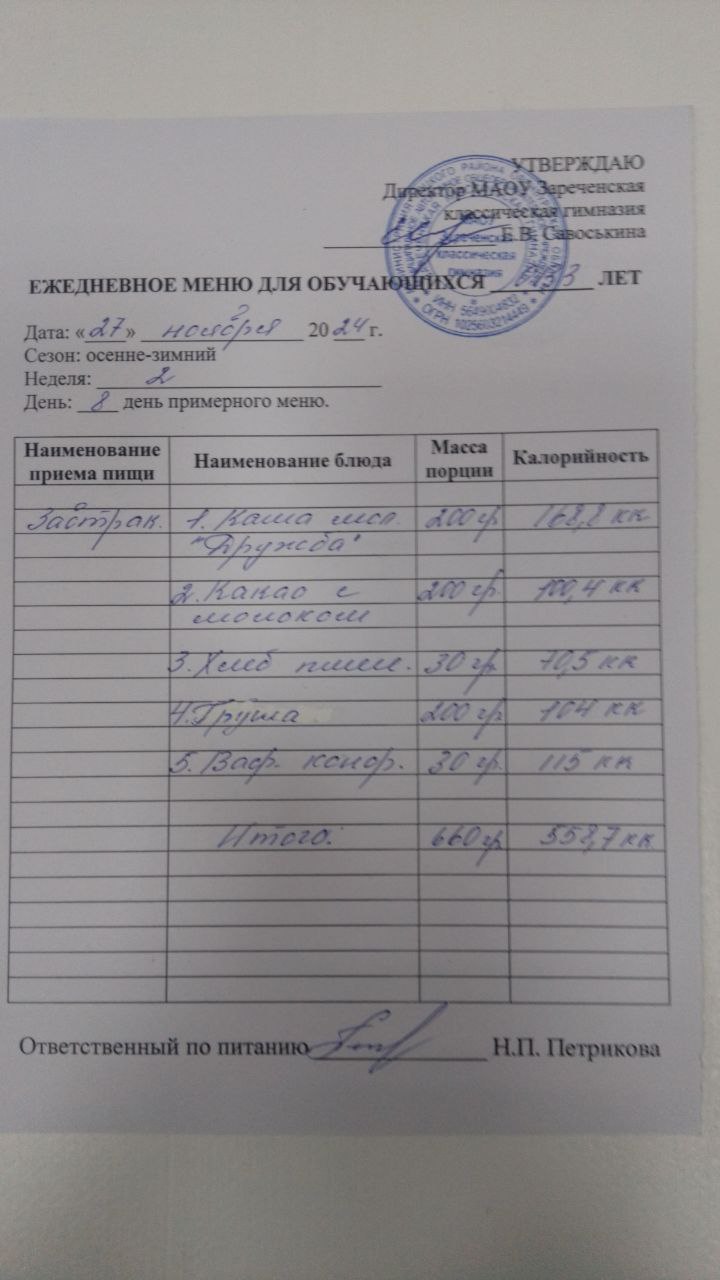 УТВЕРЖДАЮ
Директор МАОУ Зареченская
классическая гимназия
Е.В. Савоськина
ЕЖЕДНЕВНОЕ МЕНЮ ДЛЯ ОБУЧАЮЩИХСЯ ЛЕТ
Дата: «27» ноября 2024 г.
Сезон: осенне-зимний
Неделя: 2
День: 8 день примерного меню.
Наименование приема пищи Наименование блюда Масса порции Калорийность
Завтрак. 1. Каша мол. 200 гр 168,8 кк
"Дружба"
2. Какао с 200 гр. 100,4 кк
молоком
3. Хлеб пшен. 30 гр. 70,5 кк
4. Груша 200 гр 104 кк
5. Ваф. конф. 30 гр. 115 кк
Итого: 660 гр 558,7 кк
Ответственный по питанию Н.П. Петрикова
классическая
гимназия
ИНН 5649004832
ОГРН 1025603214449